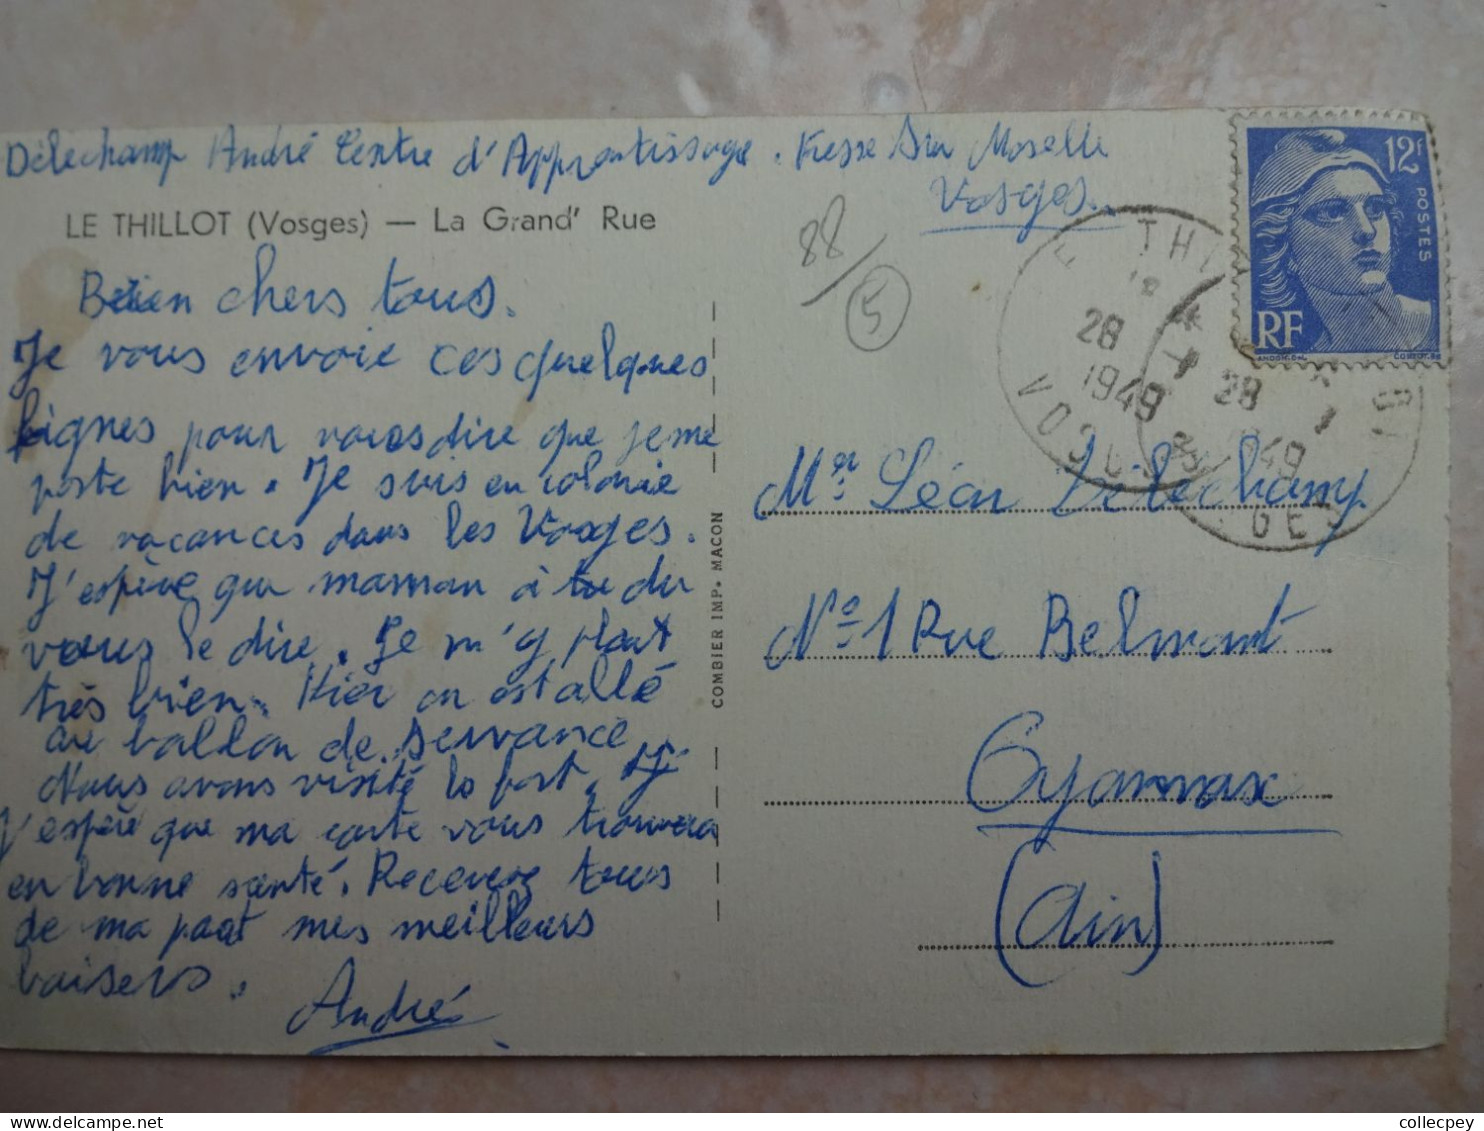 Délechamp André Centre d'Apprentissage. Fresse Sur Moselle
Vosges.
LE THILLOT (Vosges) — La Grand' Rue
Bien chers tous.
Je vous envoie ces quelques
lignes pour vous dire que je me
porte bien. Je suis en colonie
de vacances dans les Vosges.
J'espère que maman à tu du
vous le dire. Je m'y plait
très bien. Hier on est allé
au ballon de Servance
Nous avons visité le fort.
J'espère que ma carte vous trouvera
en bonne santé. Recevez tous
de ma part mes meilleurs
baisers.
André
COMBIER IMP. MACON
88/
5
12F
POSTES
RF
28
1949
VOSGES
28
49
GES
Mr Léon Délechamp
No 1 Rue Belmont
Oyonnax
(Ain)
collecpey